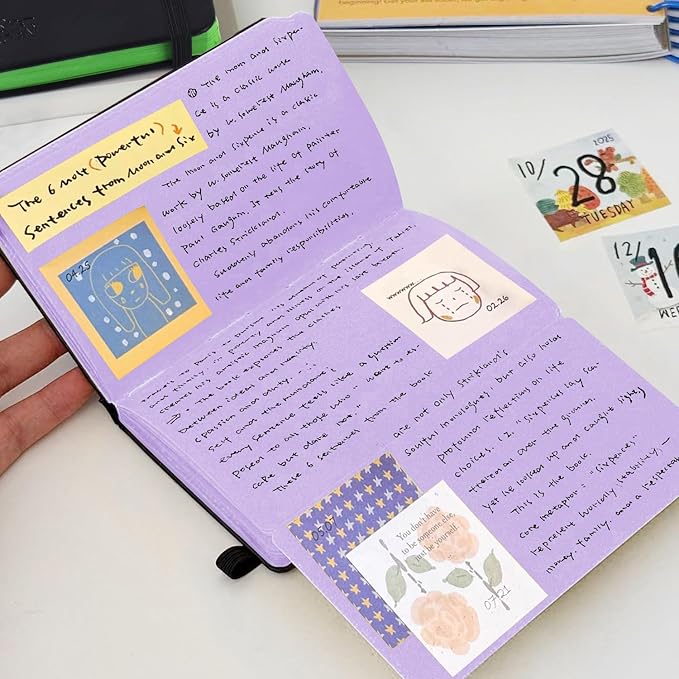 The 6 most (powerful)
sentences from Moon and Six
The moon and sixpen-
ce is a classic work
by W. Somerset Maugham.
The moon and sixpence is a classic
work by W. Somerset Maugham,
loosely based on the life of painter
Paul Gauguin. It tells the story of
Charles Strickland.
Suddenly abandons his comfortable
life and family responsibilities.
04.25
wwwww
02.26
The book explores the clashes
between ideal and reality.
passion and duty.
self and the mundane's
every sentence feels like a question
posed to all those who want to es-
cape but dare not.
These 6 sentences from the book
are not only Strickland's
soulful monologues but also holds
profound reflections on life
choices. 1: "Sixpences lay sca
ttered all over the ground.
yet he looked up and caught light)
This is the book
core metaphor: "sixpence"
represent worldly stability —
money, family, and a respectab
05.07
You don't have
to be someone else,
just be yourself.
07.21
10/
28
2025
TUESDAY
12/
1
WE